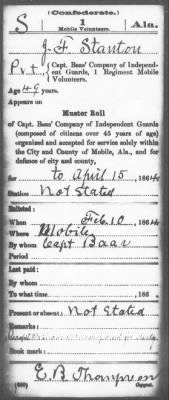 (Confederate.)
S 1 Ala.
Mobile Volunteers.
J. F. Stanton
Pvt, Capt. Bass' Company of Independent Guards, 1 Regiment Mobile Volunteers.
Age 49 years.
Appears on
Muster Roll
of Capt. Bass' Company of Independent Guards
(composed of citizens over 45 years of age)
organized and accepted for service solely within
the City and County of Mobile, Ala., and for
defense of city and county,
for to April 15, 1864
Station Not Stated
Enlisted:
When Feb. 10, 1864
Where Mobile
By whom Capt Baas
Period
Last paid:
By whom
To what time , 186 .
Present or absent Not Stated
Remarks:
Book mark:
E. B. Thompson
(660) Copyist.